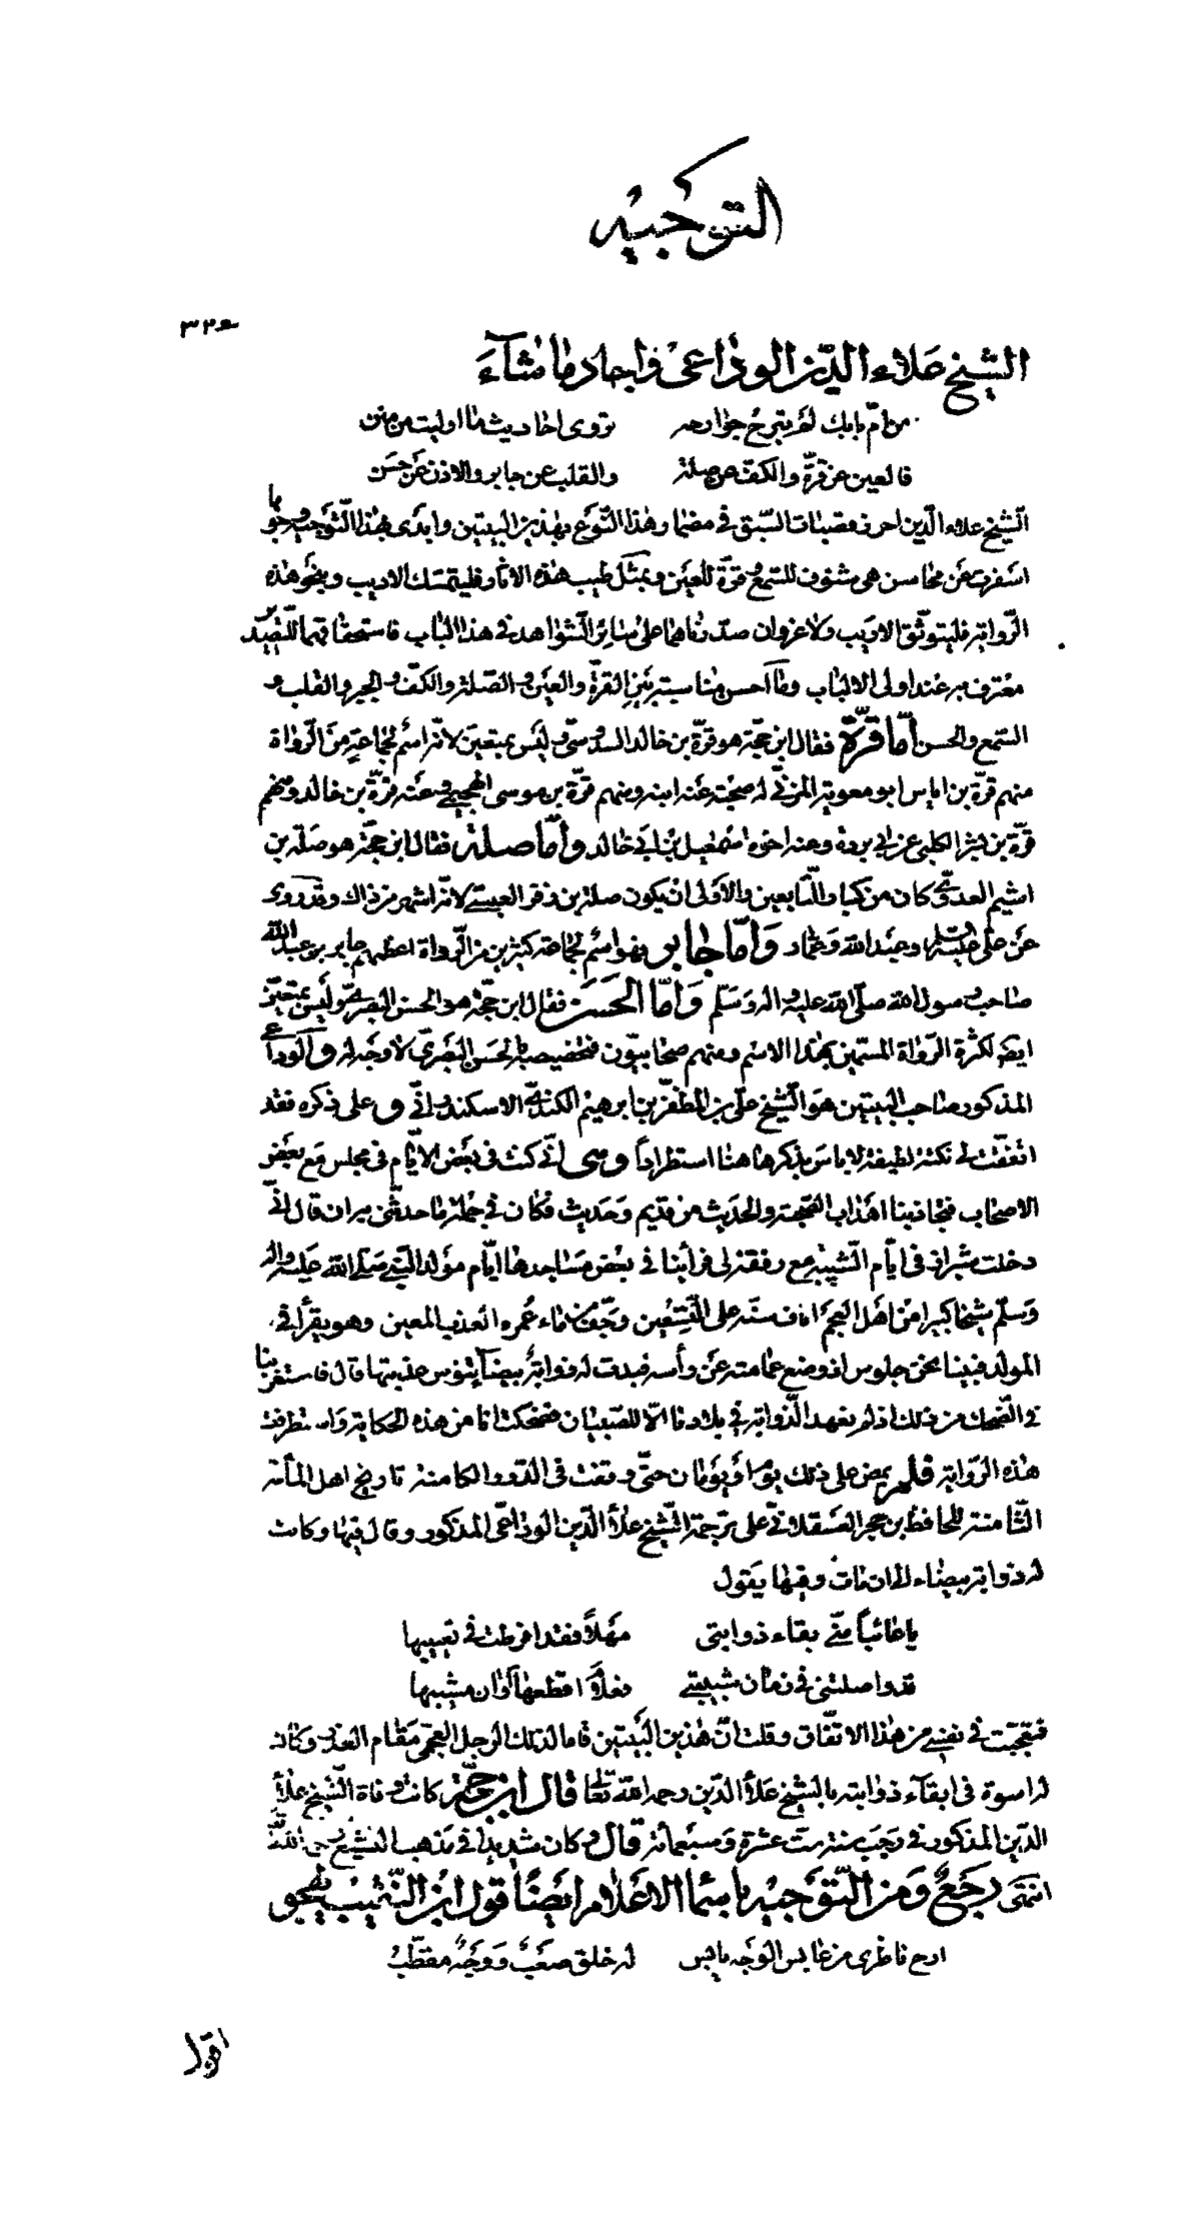 التوجيه
٣٢٥
الشيخ علاء الدين الوداعى واجاد ما شآء
من امّ بابك لم تبرح جوارحه تروى احاديث ما اوليت من منن
فالعين عن قرّة والكفّ عن صلة والقلب عن جابر والاذن عن حسن
الشيخ علاء الدين احرز قصبات السّبق فى مضمار هذا النّوع بهذين البيتين وابدى بهذا التّوجيه وجوها
اسفرت عن محاسن هى شنوف للسّمع وقرّة للعين وبمثل طيب هذه الاثار فليتمسّك الاديب وبنحو هذه
الرّواية فليتوثّق الاريب ولا غرو ان صدّرناهما على سائر الشّواهد فى هذا الباب فاستحقاقهما للتّصدير
معترف به عند اولى الالباب وما احسن مناسبته بين القرّة والعين والصّلة والكفّ والجبر والقلب و
السّمع والحسن امّا قرّة فقال ابن حجّة هو قرّة بن خالد السّدوسىّ وليس بمتعيّن لانّه اسم لجماعة من الرّواة
منهم قرّة بن اياس ابو معوية المزنىّ له صحبة عنه ابنه ومنهم قرّة بن موسى الهجيمى وعنه قرّة بن خالد ومنهم
قرّة بن بشر الكلبى عن ابى بردة وعنه اخوه اسمعيل بن ابى خالد وامّا صلة فقال ابن حجّة هو صلة بن
اشيم العدوىّ كان من كبار التّابعين والاولى ان يكون صلة بن زفر العبسىّ لانّه اشهر من ذاك وقد روى
عن علىّ عليه السلام وعبد الله وعمّار وامّا جابر فهو اسم لجماعة كثيرين من الرّواة اعظمهم جابر بن عبد الله
صاحب رسول الله صلّى الله عليه واله وسلّم وامّا الحسن فقال ابن حجّة هو الحسن البصرىّ وليس بمتعيّن
ايضا لكثرة الرّواة المسمّين بهذا الاسم ومنهم صحابيّون فتخصيصه بالحسن البصرىّ لا وجه له والوداعى
المذكور صاحب البيتين هو الشّيخ علىّ بن المظفّر بن ابرهيم الكندىّ الاسكندرانىّ وعلى ذكره فقد
اتّفقت لى نكتة لطيفة لا باس بذكرها هنا استطراداً وهى انّى كنت فى بعض الايّام فى مجلس مع بعض
الاصحاب فتجاذبنا اهداب الصّحبة والحديث من قديم وحديث فكان فى جملة ما حدثنى به ان قال انّى
دخلت شيراز فى ايّام الشّبيبة مع رفقة لى فرأينا فى بعض مساجدها ايّام مولد النّبى صلى الله عليه واله
وسلّم شيخا كبيرا من اهل العجم اناف سنّه على التّسعين وجفّ من ماء عمره العذب المعين وهو يقرأ فى
المولد فبينا نحن جلوس اذ وضع عمامته عن رأسه فبدت له ذوابة بيضآء ينوس عذبتها قال فاستغربنا
فى الضّحك من ذلك اذ لم نعهد الذّوابة فى بلادنا الّا للصّبيان فضحكت انا من هذه الحكاية واستطرفت
هذه الرّواية فلم يمض على ذلك يوم او يومان حتّى وقفت فى الدّرر الكامنة تاريخ اهل المأة
الثّامنة للحافظ بن حجر العسقلانىّ على ترجمة الشّيخ علاء الدّين الوداعى المذكور وقال فيها وكانت
له ذوابة بيضاء الى ان مات وفيها يقول
يا عائباً منّى بقاء ذوابتى مهلاً فقد افرطت فى تعييبها
قد واصلتنى فى زمان شبيبتى فعلامَ اقطعها اوان مشيبها
فتعجّبت فى نفسى من هذا الاتّفاق وقلت انّ هذين البيتين قاما لذلك الرجل العجمى مقام العذر وكان
له اسوة فى ابقآء ذوابته بالشيخ علاء الدّين رحمه الله تعالى قال ابن حجّة كانت وفاة الشّيخ علاء
الدّين المذكور فى رجب سنة ستّ عشرة وسبعمائة قال وكان شديدا فى مذهب التشيّع رحمه الله
انتهى رجع ومن التّوجيه باسماء الاعلام ايضاً قول ابن النّقيب يهجو
ارح ناظرى من عابس الوجه يابس له خلق صعب ووجه مقطّب
اقول